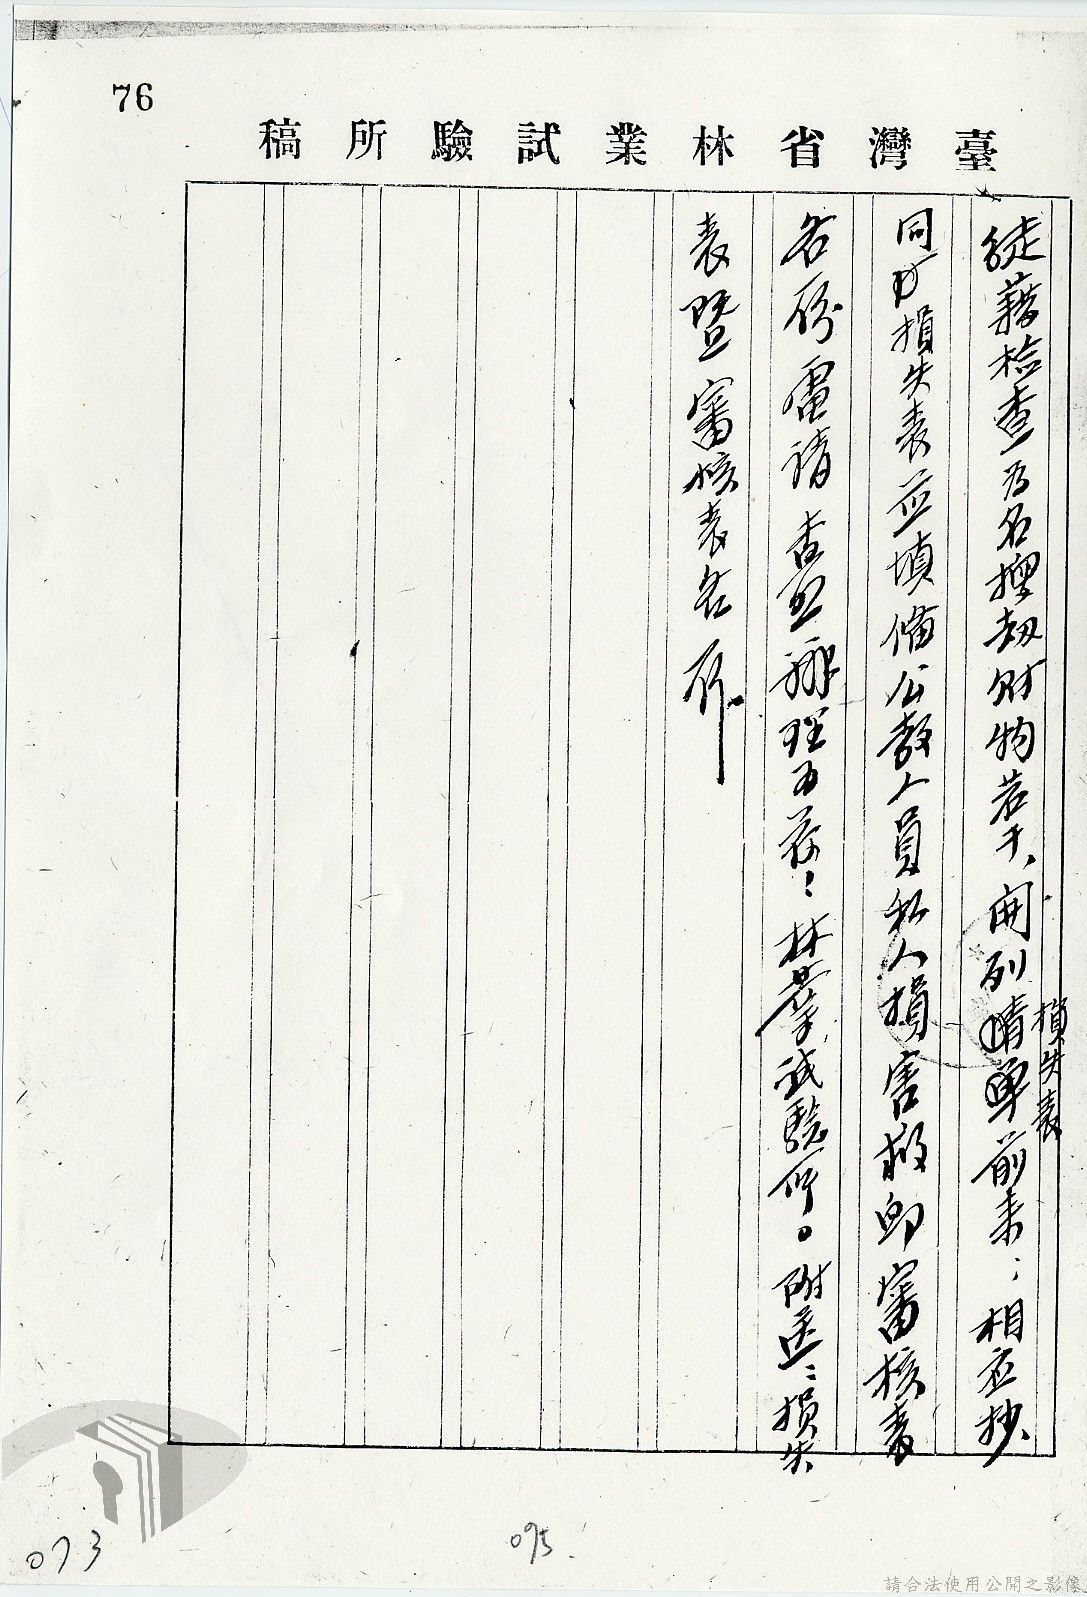 76
臺灣省林業試驗所稿
徒藉檢查為名搜劫財物若干、開列清單前来；相应抄
損失表
同原損失表並填備公教人員私人損害救卹審核表
各份電請查照辦理為荷！林業試驗所。附送：損失
表暨審核表各 份
073
095
請合法使用公開之影像